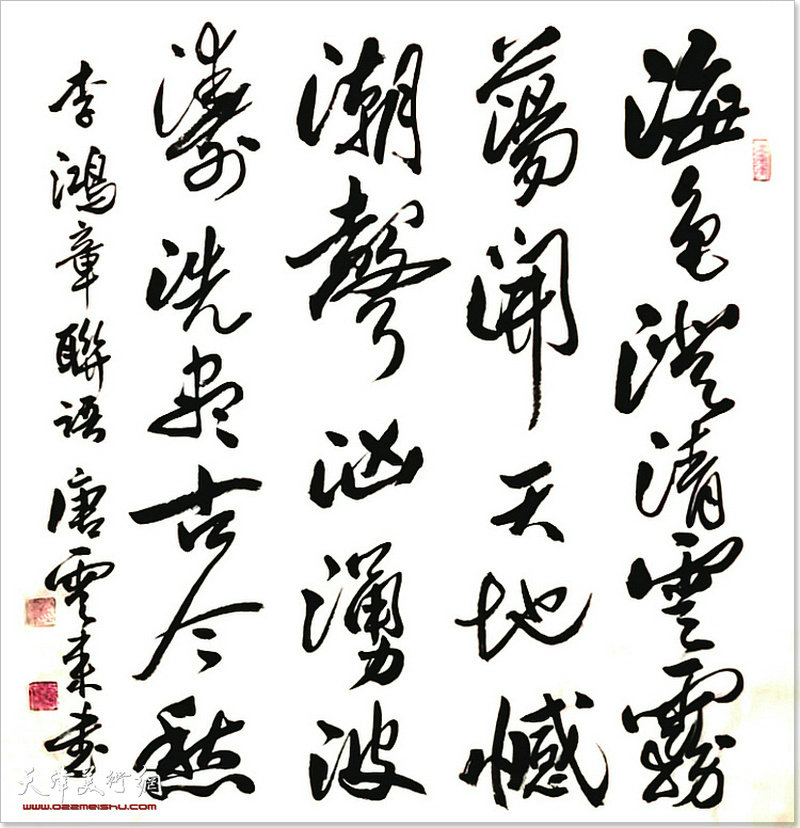 海色澄清雲霧
蕩開天地憾
潮聲洶湧波
濤洗盡古今愁
李鴻章聯語 唐雲来書
天津美術網
www.022meishu.com